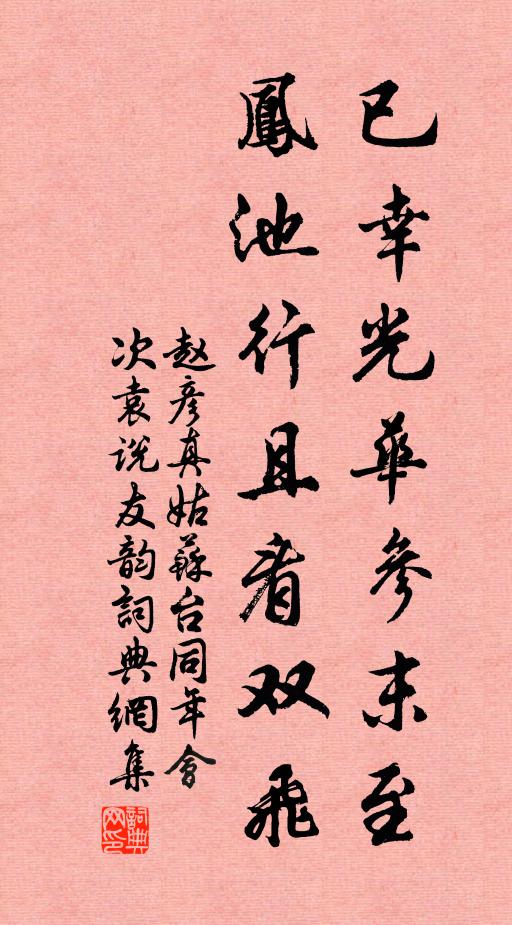 已幸光華參末至
鳳池行且看双飛
赵彦真姑蘇台同年會
次袁说友韵詞典網集
詞典网印